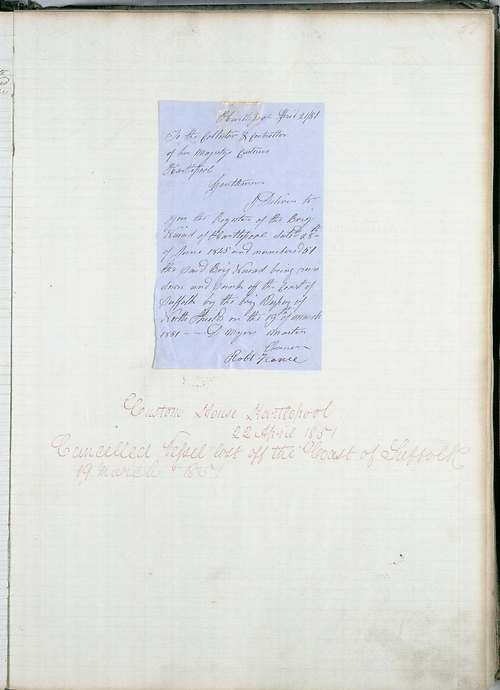 Hartlepool April 21/51
To the Collector & Controller
of her Majestys Customs
Hartlepool
Gentlemen
I Deliver to
you the Register of the Brig
Naiad of Hartlepool dated 28th
of June 1848 and numbered 51
the said Brig Naiad being run
down and sunk off the Coast of
Suffolk by the brig of
North Shields on the 19th of March
1851 -- D Myers Master
Owner
Robt France
Custom House Hartlepool
22 April 1851
Cancelled Vessel lost off the Coast of Suffolk
19 March 1851